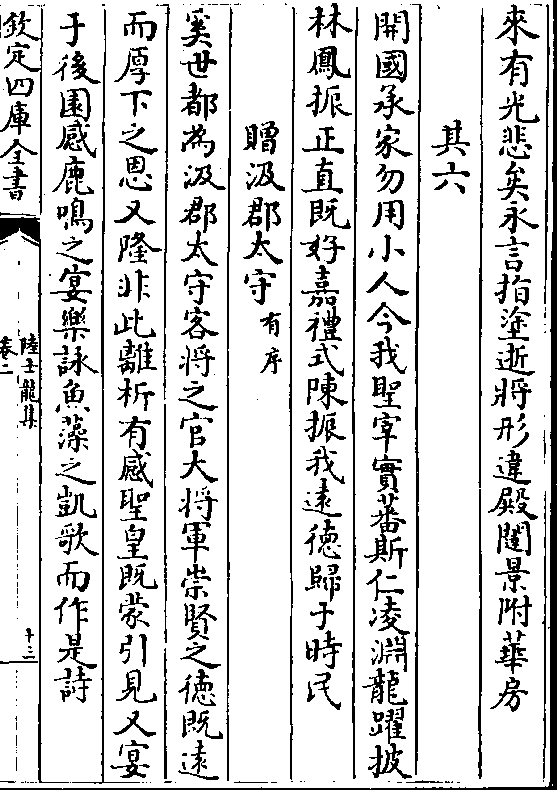 來有光悲矣永言指塗逝將形違殿闥景附華房
其六
開國承家勿用小人今我聖宰實蕃斯仁凌淵龍躍披
林鳳振正直既好嘉禮式陳振我遠德歸于時民
贈汲郡太守有序
奚世都為汲郡太守客將之官大將軍崇賢之德既遠
而厚下之恩又隆非此離析有感聖皇既蒙引見又宴
于後園感鹿鳴之宴樂詠魚藻之凱歌而作是詩
欽定四庫全書
陸士龍集
卷二
十三